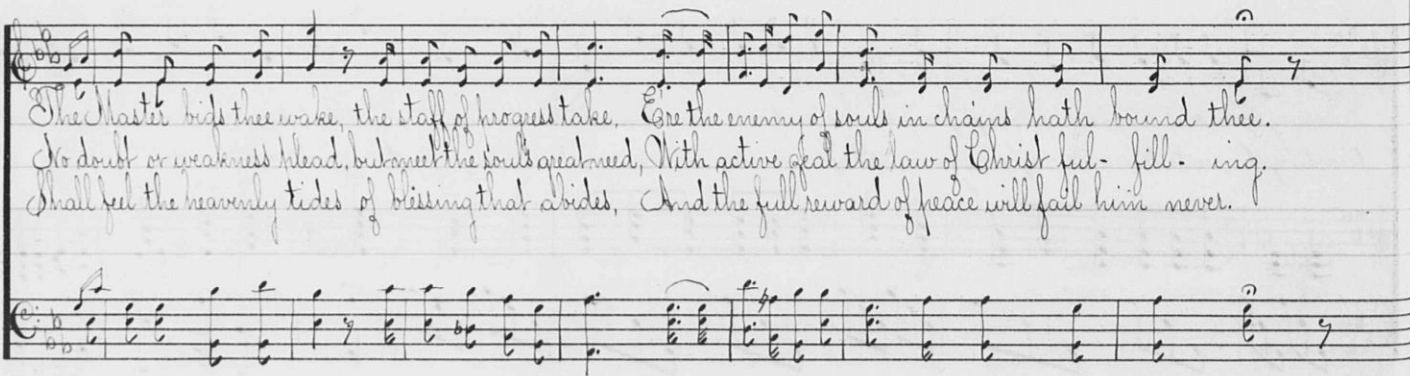 The Master bids thee wake, the staff of progress take, Ere the enemy of souls in chains hath bound thee.
No doubt or weakness plead, but meet the soul's great need, With active zeal the law of Christ ful- fill- ing.
Shall feel the heavenly tides of blessing that abides, And the full reward of peace will fail him never.